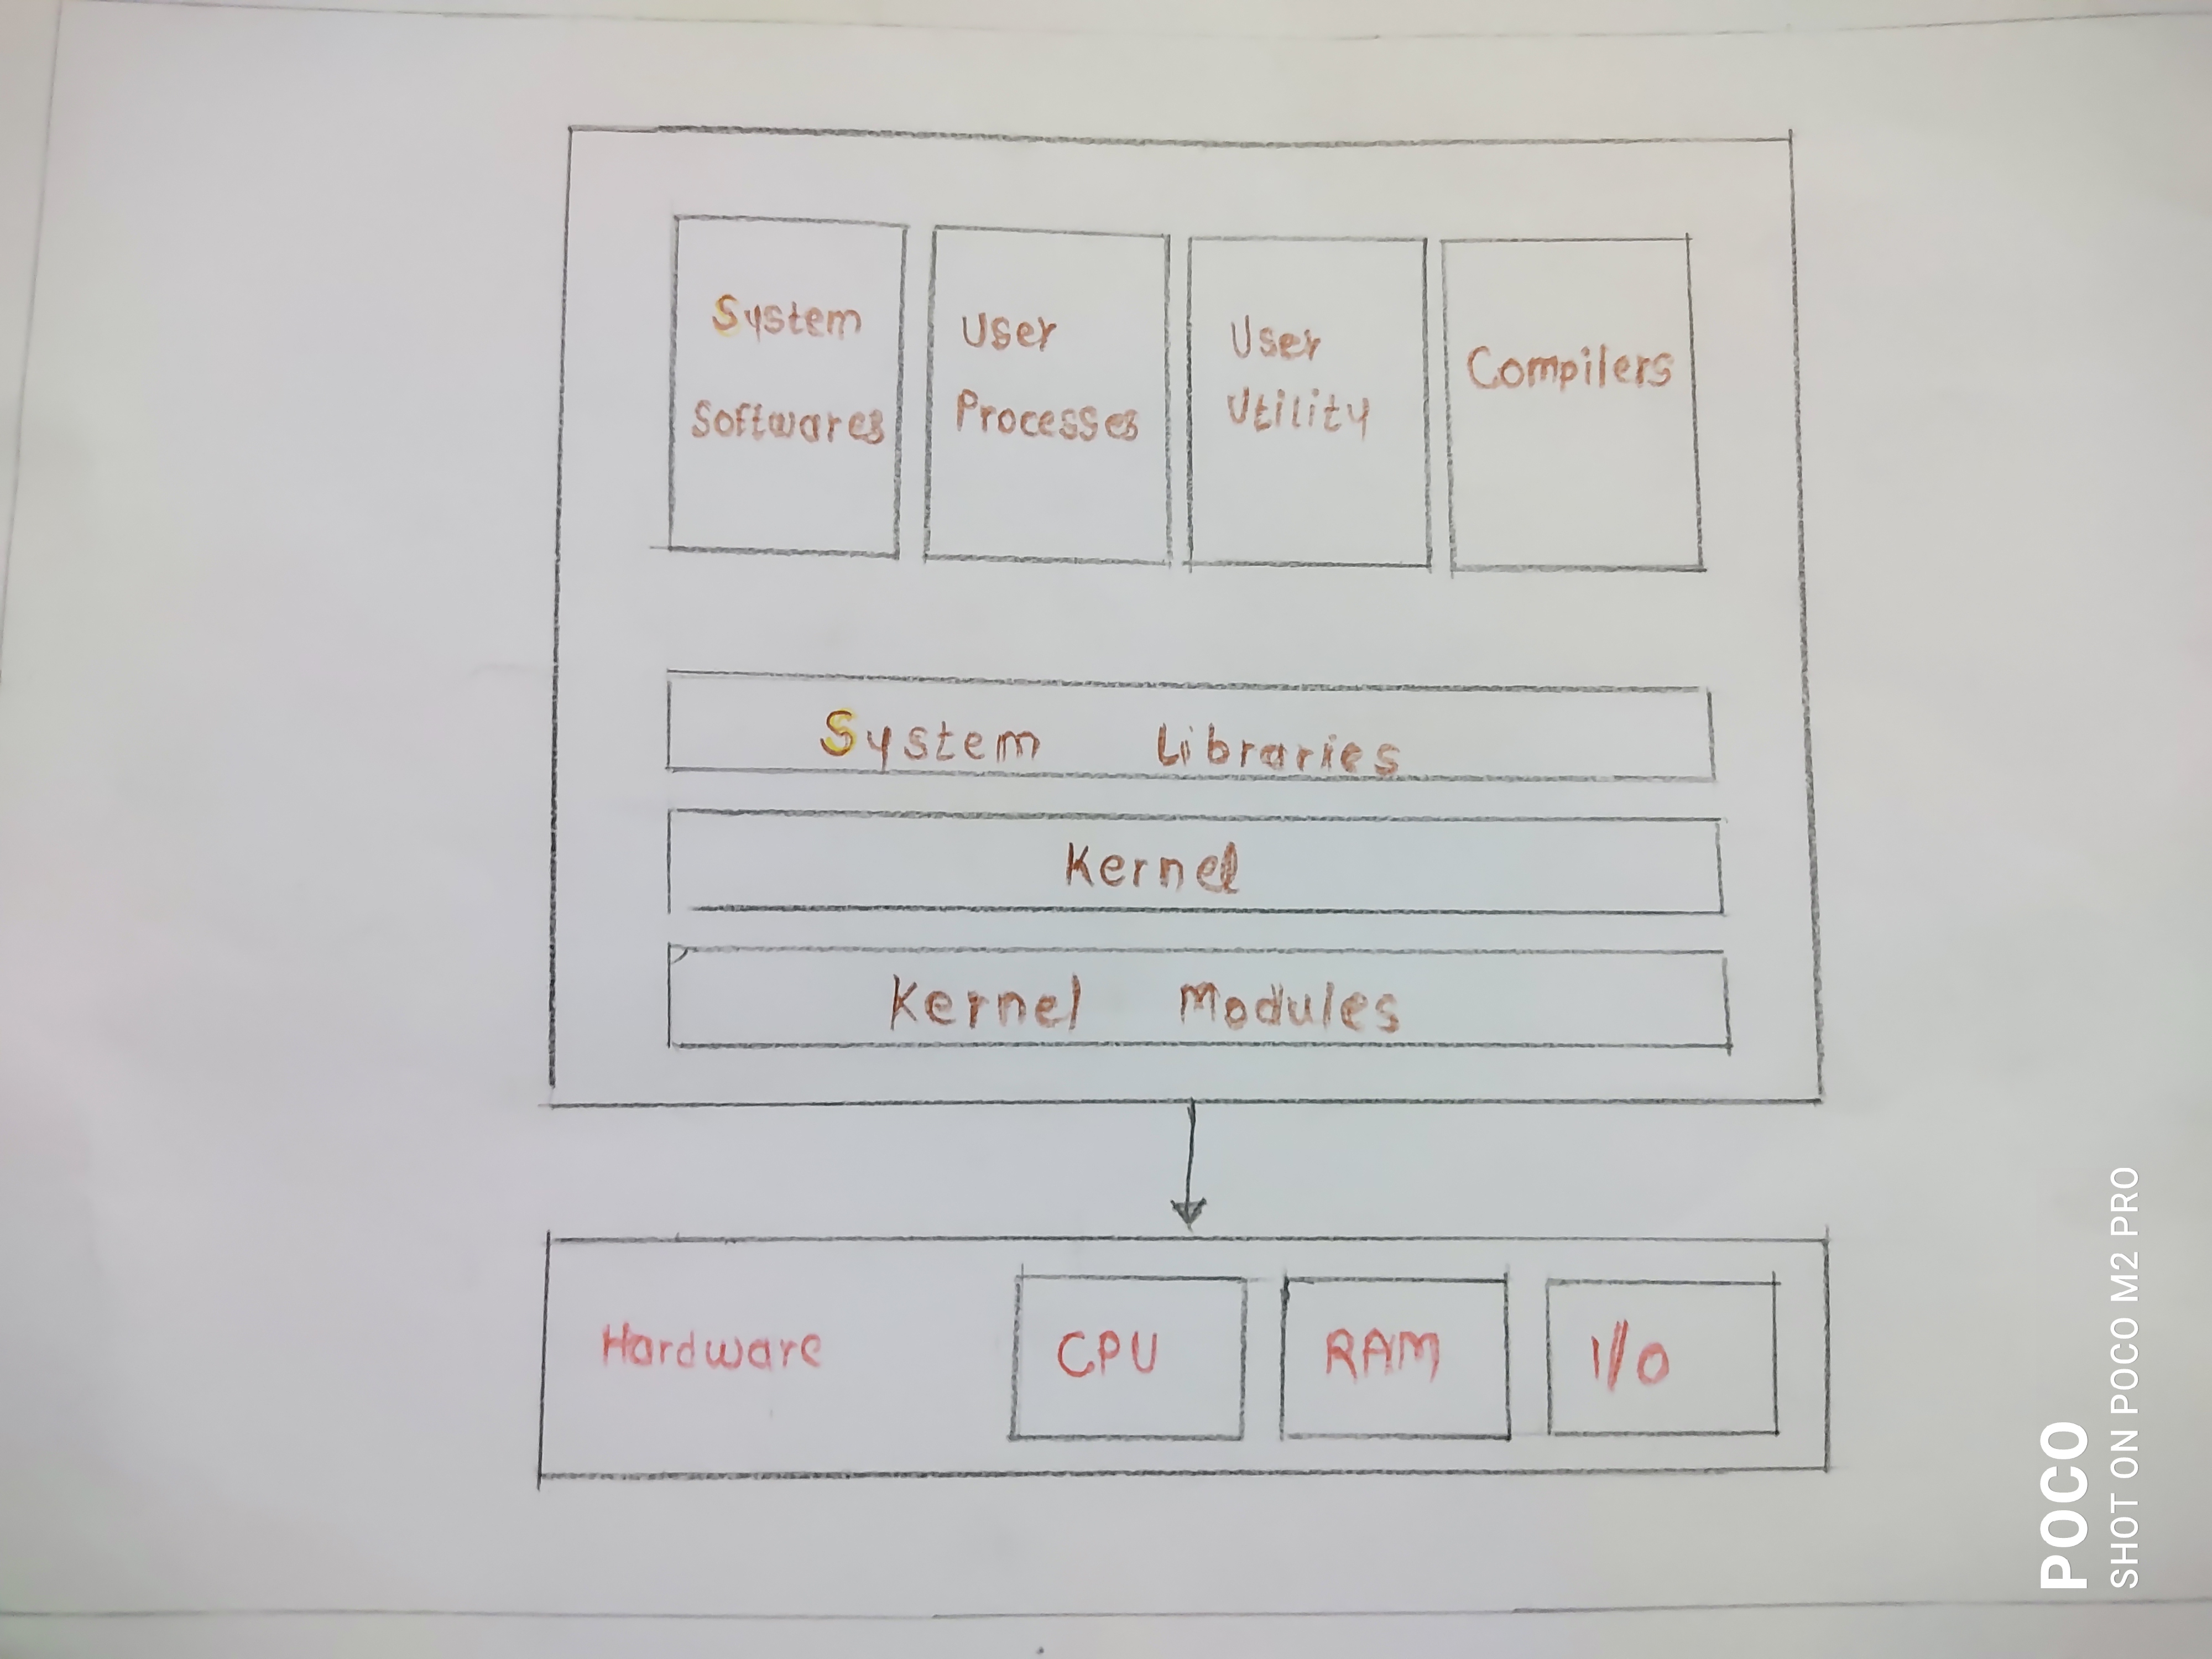 System
Softwares
User
Processes
User
Utility
Compilers
System Libraries
Kernel
Kernel Modules
Hardware
CPU
RAM
I/O
POCO
SHOT ON POCO M2 PRO